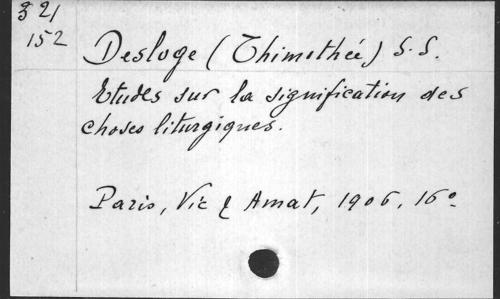 321
152
Desloge (Thimothée) S.S.
Etudes sur la signification des
choses liturgiques.
Paris, Vic & Amat, 1906. 16°.